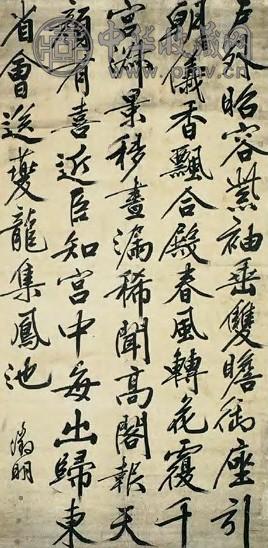 戶外昭容紫袖垂雙瞻御座引
朝儀香飄合殿春風轉花覆千
官淑景移晝漏稀聞高閣報天
顏有喜近臣知宮中每出歸東
省會送夔龍集鳳池
徵明
中华收藏网